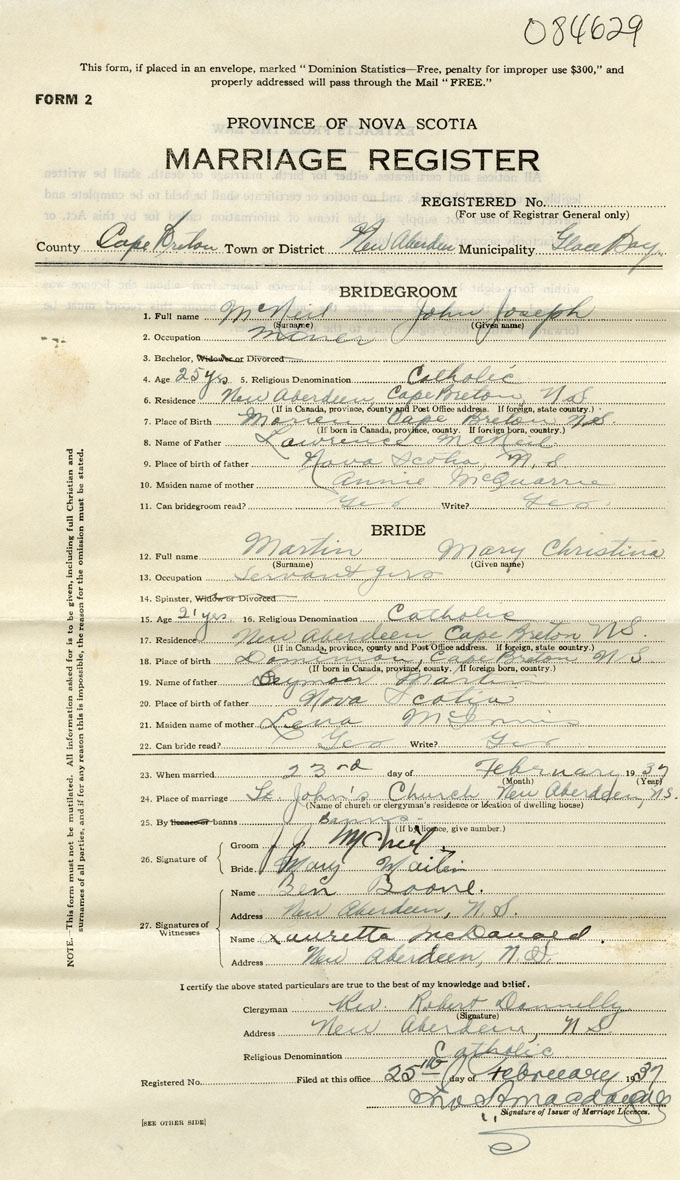 084629
This form, if placed in an envelope, marked "Dominion Statistics—Free, penalty for improper use $300," and
properly addressed will pass through the Mail "FREE."
FORM 2
PROVINCE OF NOVA SCOTIA
MARRIAGE REGISTER
REGISTERED No.
(For use of Registrar General only)
County Cape Breton Town or District New Aberdeen Municipality Glace Bay
BRIDEGROOM
1. Full name McNeil John Joseph
(Surname) (Given name)
2. Occupation Miner
3. Bachelor, Widower or Divorced
4. Age 25 yrs 5. Religious Denomination Catholic
6. Residence New Aberdeen, Cape Breton, N.S.
(If in Canada, province, county and Post Office address. If foreign, state country.)
7. Place of Birth Morien Cape Breton N.S.
(If born in Canada, province, county. If foreign born, country.)
8. Name of Father Lawrence McNeil
9. Place of birth of father Nova Scotia, N.S
10. Maiden name of mother Annie McQuarrie
11. Can bridegroom read? Yes Write? Yes
BRIDE
12. Full name Martin Mary Christina
(Surname) (Given name)
13. Occupation Servant girl
14. Spinster, Widow or Divorced
15. Age 21 yrs. 16. Religious Denomination Catholic
17. Residence New Aberdeen Cape Breton N.S.
(If in Canada, province, county and Post Office address. If foreign, state country.)
18. Place of birth Dominion, Cape Breton N S
(If born in Canada, province, county. If foreign born, country.)
19. Name of father Seymour Martin
20. Place of birth of father Nova Scotia
21. Maiden name of mother Lena McInnis
22. Can bride read? Yes Write? Yes
23. When married 23rd day of February 1937
(Month) (Year)
24. Place of marriage St. John's Church New Aberdeen, N.S.
(Name of church or clergyman's residence or location of dwelling house)
25. By licence or banns Banns
(If by licence, give number.)
26. Signature of
Groom J. J. McNeil
Bride Mary Martin
27. Signatures of Witnesses
Name Ben Boone.
Address New Aberdeen, N.S.
Name Lauretta McDonald.
Address New Aberdeen, N.S.
I certify the above stated particulars are true to the best of my knowledge and belief.
Clergyman Rev. Robert Donnelly
(Signature)
Address New Aberdeen, N S
Religious Denomination Catholic
Registered No. Filed at this office 25th day of February 1937
Signature of Issuer of Marriage Licences.
[SEE OTHER SIDE]
NOTE. This form must not be mutilated. All information asked for is to be given, including full Christian and
surnames of all parties, and if for any reason this is impossible, the reason for the omission must be stated.